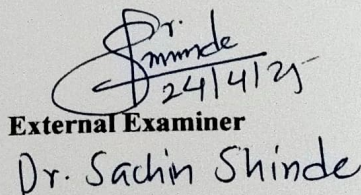 Dr.
Shinde
24/4/25
External Examiner
Dr. Sachin Shinde